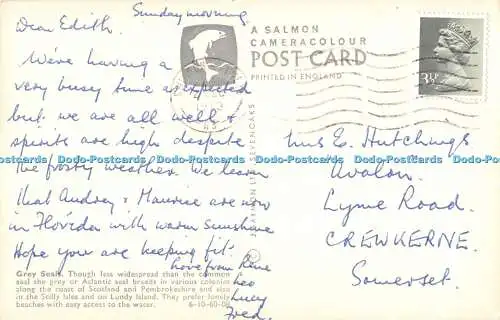 Sunday morning
Dear Edith,
We're having a
very busy time as expected
but we are all well &
spirits are high despite
the frosty weather. We learn
that Audrey & Maurice are now
in Florida with warm sunshine
Hope you are keeping fit.
Love from Rene
Leo
Lucy
Fred.
Grey Seals. Though less widespread than the common
seal the grey or Atlantic seal breeds in various colonies
along the coast of Scotland and Pembrokeshire and also
in the Scilly Isles and on Lundy Island. They prefer lonely
beaches with easy access to the water. 6-10-60-08
A SALMON
CAMERACOLOUR
POST CARD
PRINTED IN ENGLAND
SEVENOAKS
3½P
Mrs E. Hutchings
Avalon.
Lyme Road.
CREWKERNE.
Somerset.
www.Democratic-Postcards.com